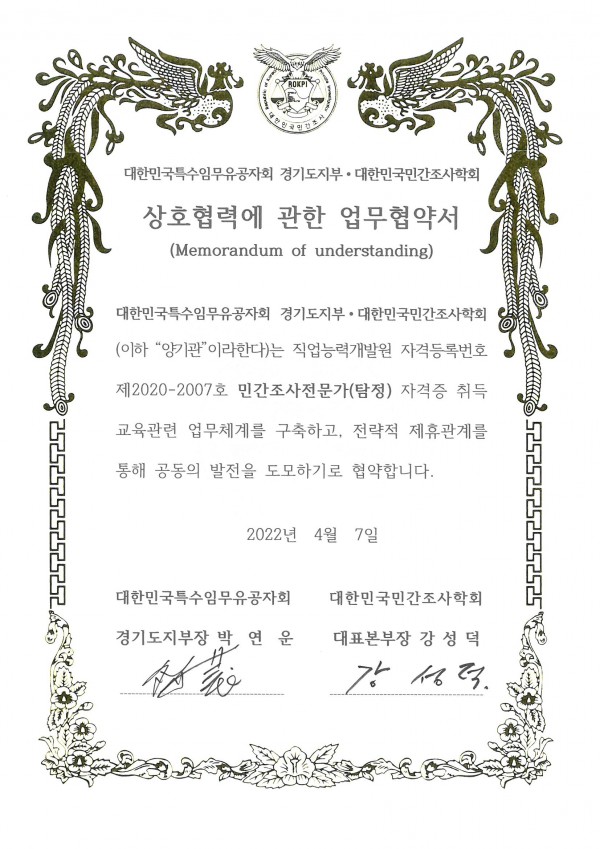 ROKPI
대한민국민간조사
대한민국특수임무유공자회 경기도지부·대한민국민간조사학회
상호협력에 관한 업무협약서
(Memorandum of understanding)
대한민국특수임무유공자회 경기도지부·대한민국민간조사학회
(이하 “양기관”이라한다)는 직업능력개발원 자격등록번호
제2020-2007호 민간조사전문가(탐정) 자격증 취득
교육관련 업무체계를 구축하고, 전략적 제휴관계를
통해 공동의 발전을 도모하기로 협약합니다.
2022년 4월 7일
대한민국특수임무유공자회 대한민국민간조사학회
경기도지부장 박 연 운 대표본부장 강 성 덕
강 성 덕.